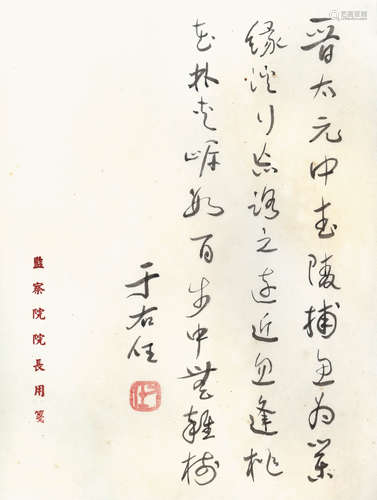 晉太元中武陵捕魚為業
緣溪行忘路之遠近忽逢桃
花林夾岸數百步中無雜樹
于右任
監察院院長用箋